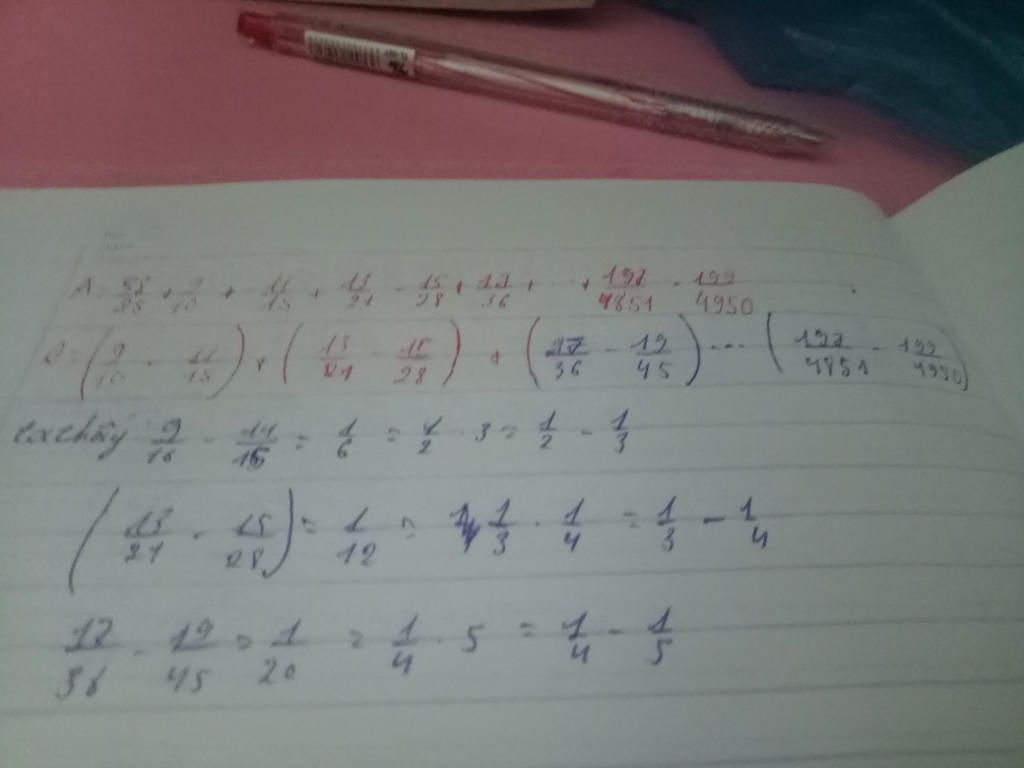 A = 53/25 + 9/10 + - 11/15 + 13/21 - 15/28 + 17/36 + ... + 197/4851 - 199/4950
= (9/10 - 11/15) + (13/21 - 15/28) + (17/36 - 19/45) ... (197/4851 - 199/4950)
9/10 - 11/15 = 1/6 = 1/2 . 3 = 1/2 - 1/3
(13/21 - 15/28) = 1/12 = 1/3 . 1/4 = 1/3 - 1/4
17/36 - 19/45 = 1/20 = 1/4 . 5 = 1/4 - 1/5